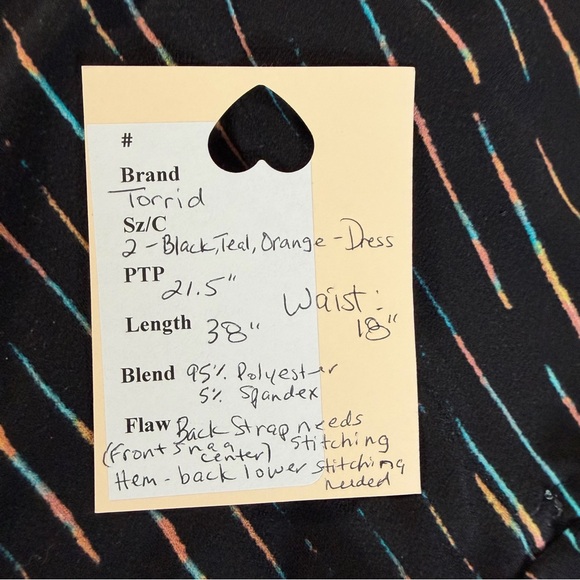 #
Brand
Torrid
Sz/C
2 - Black, Teal, Orange - Dress
PTP
21.5"
Waist:
18"
Length 38"
Blend 95% Polyester
5% Spandex
Flaw Back Strap needs
stitching
(Front snag
center)
Hem - back lower stitching
needed